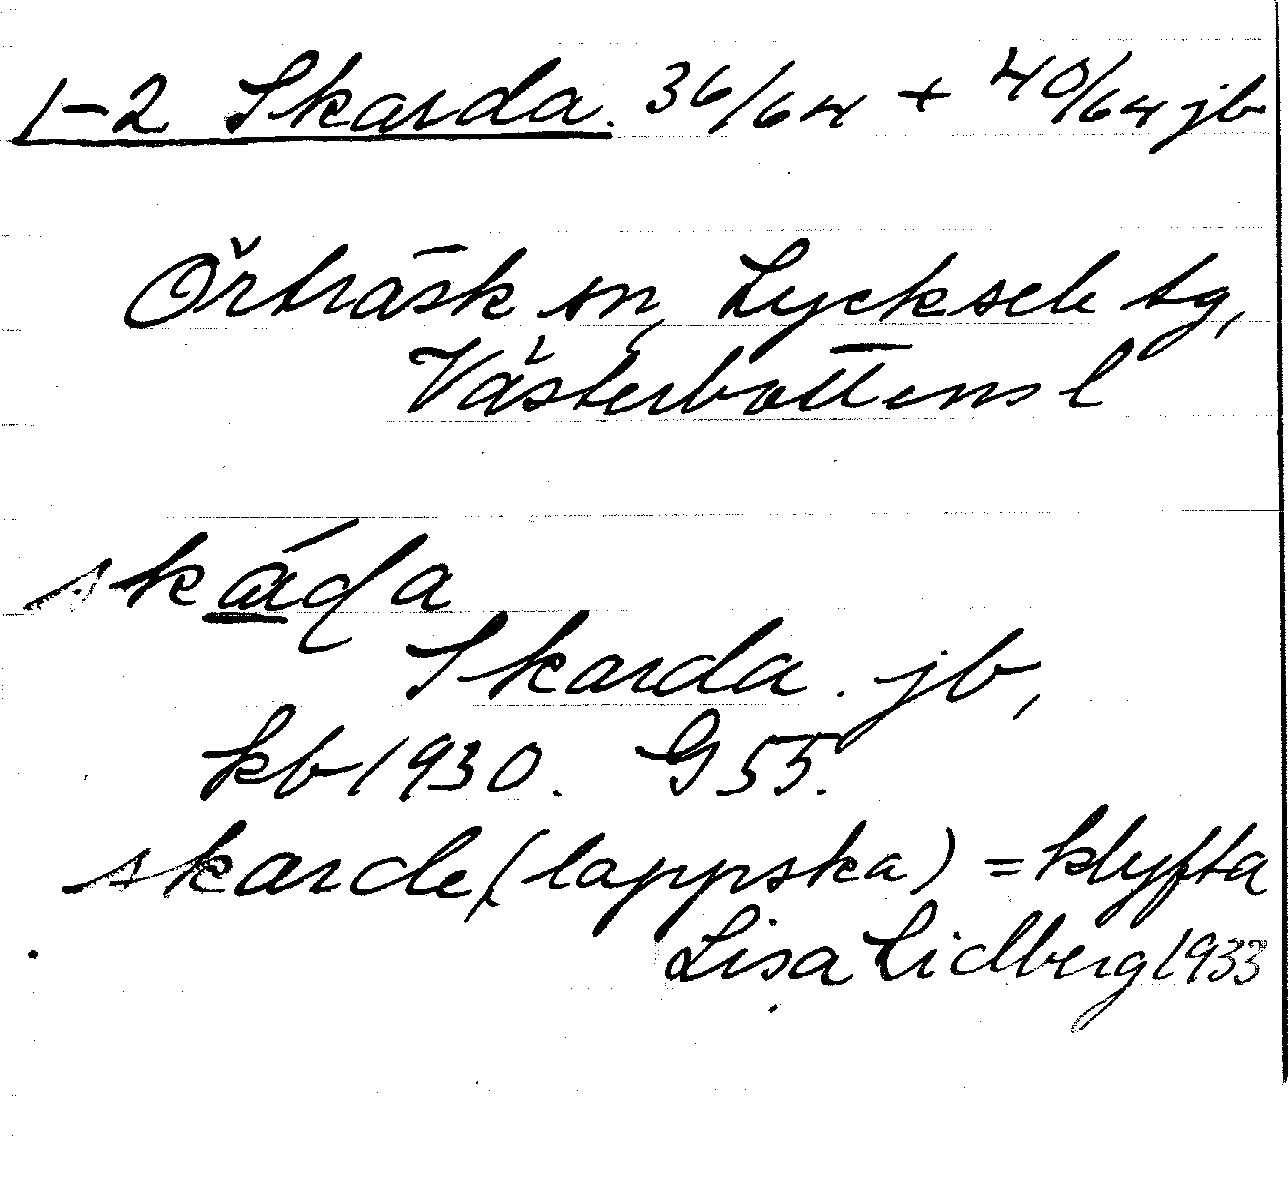 1-2 Skarda. 36/64 + 40/64 jb
Örträsk sn, Lycksele tg,
Västerbottens l
skáɖa
Skarda. jb,
kb 1930. G 55.
skarde (lappska) = klyfta
Lisa Lidberg 1933